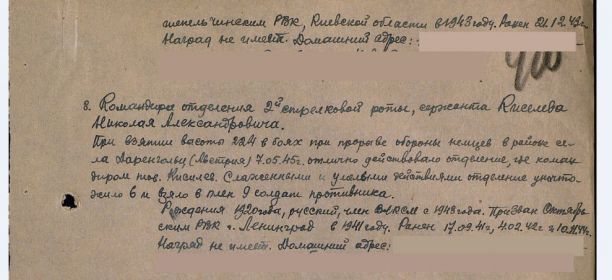 шепельчинским РВК, Киевской области в 1943 году. Ранен 21.12.43г.
Наград не имеет. Домашний адрес:
8. Командира отделения 2й стрелковой роты, сержанта Киселева
Николая Александровича.
При взятии высоты 224 в боях при прорыве обороны немцев в районе се-
ла Харенгольц (Австрия) 7.05.45г. отлично действовало отделение, где коман
диром тов. Киселев. Слаженными и умелыми действиями отделение уничто-
жило 6 и взяло в плен 9 солдат противника.
Рождения 1920 года, русский, член ВЛКСМ с 1943 года. Призван Октябрь
ским РВК г. Ленинград в 1941 году. Ранен 17.09.41г, 4.02.42г и 10.11.44г.
Наград не имеет. Домашний адрес: